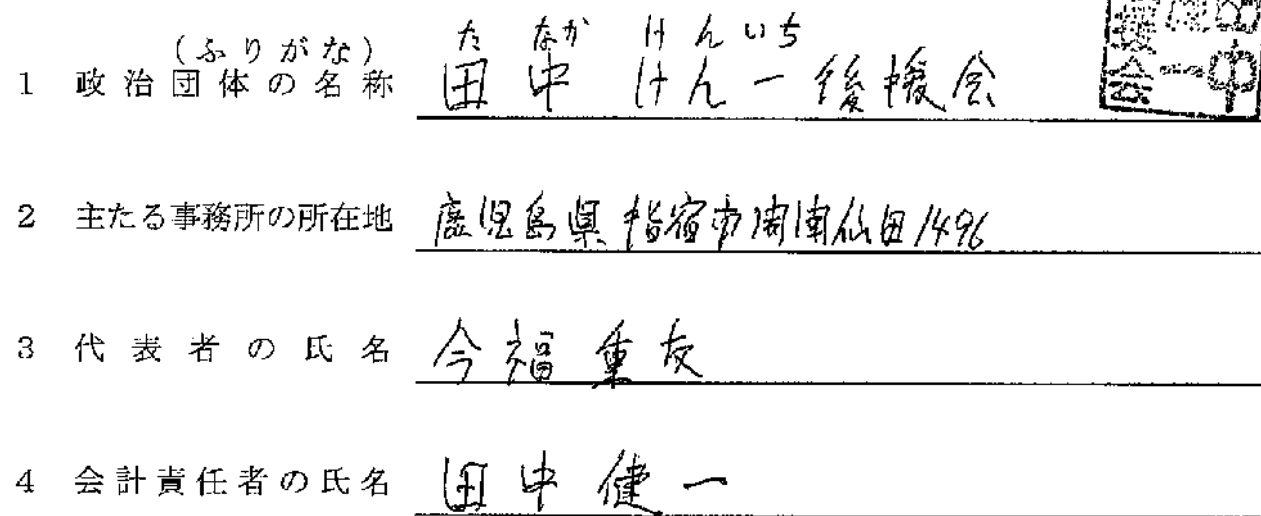 (ふりがな) たなか けんいち
1 政治団体の名称 田中けん一後援会
2 主たる事務所の所在地 鹿児島県指宿市開聞仙田1496
3 代表者の氏名 今福重友
4 会計責任者の氏名 田中健一